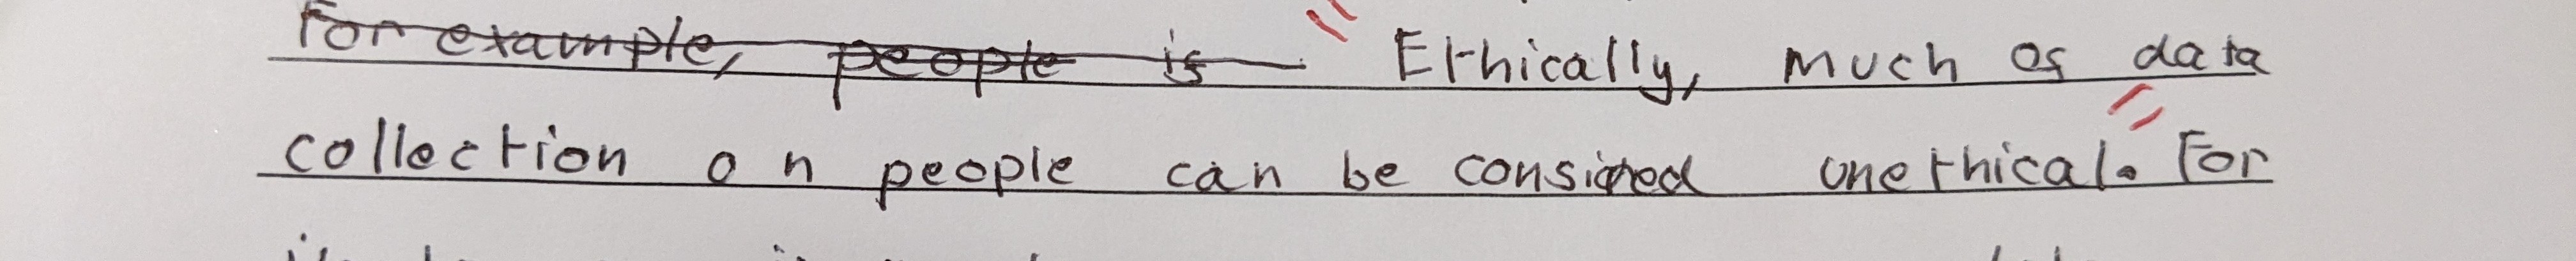 For example, people is " Ethically, much of data
collection on people can be considred unethical." For